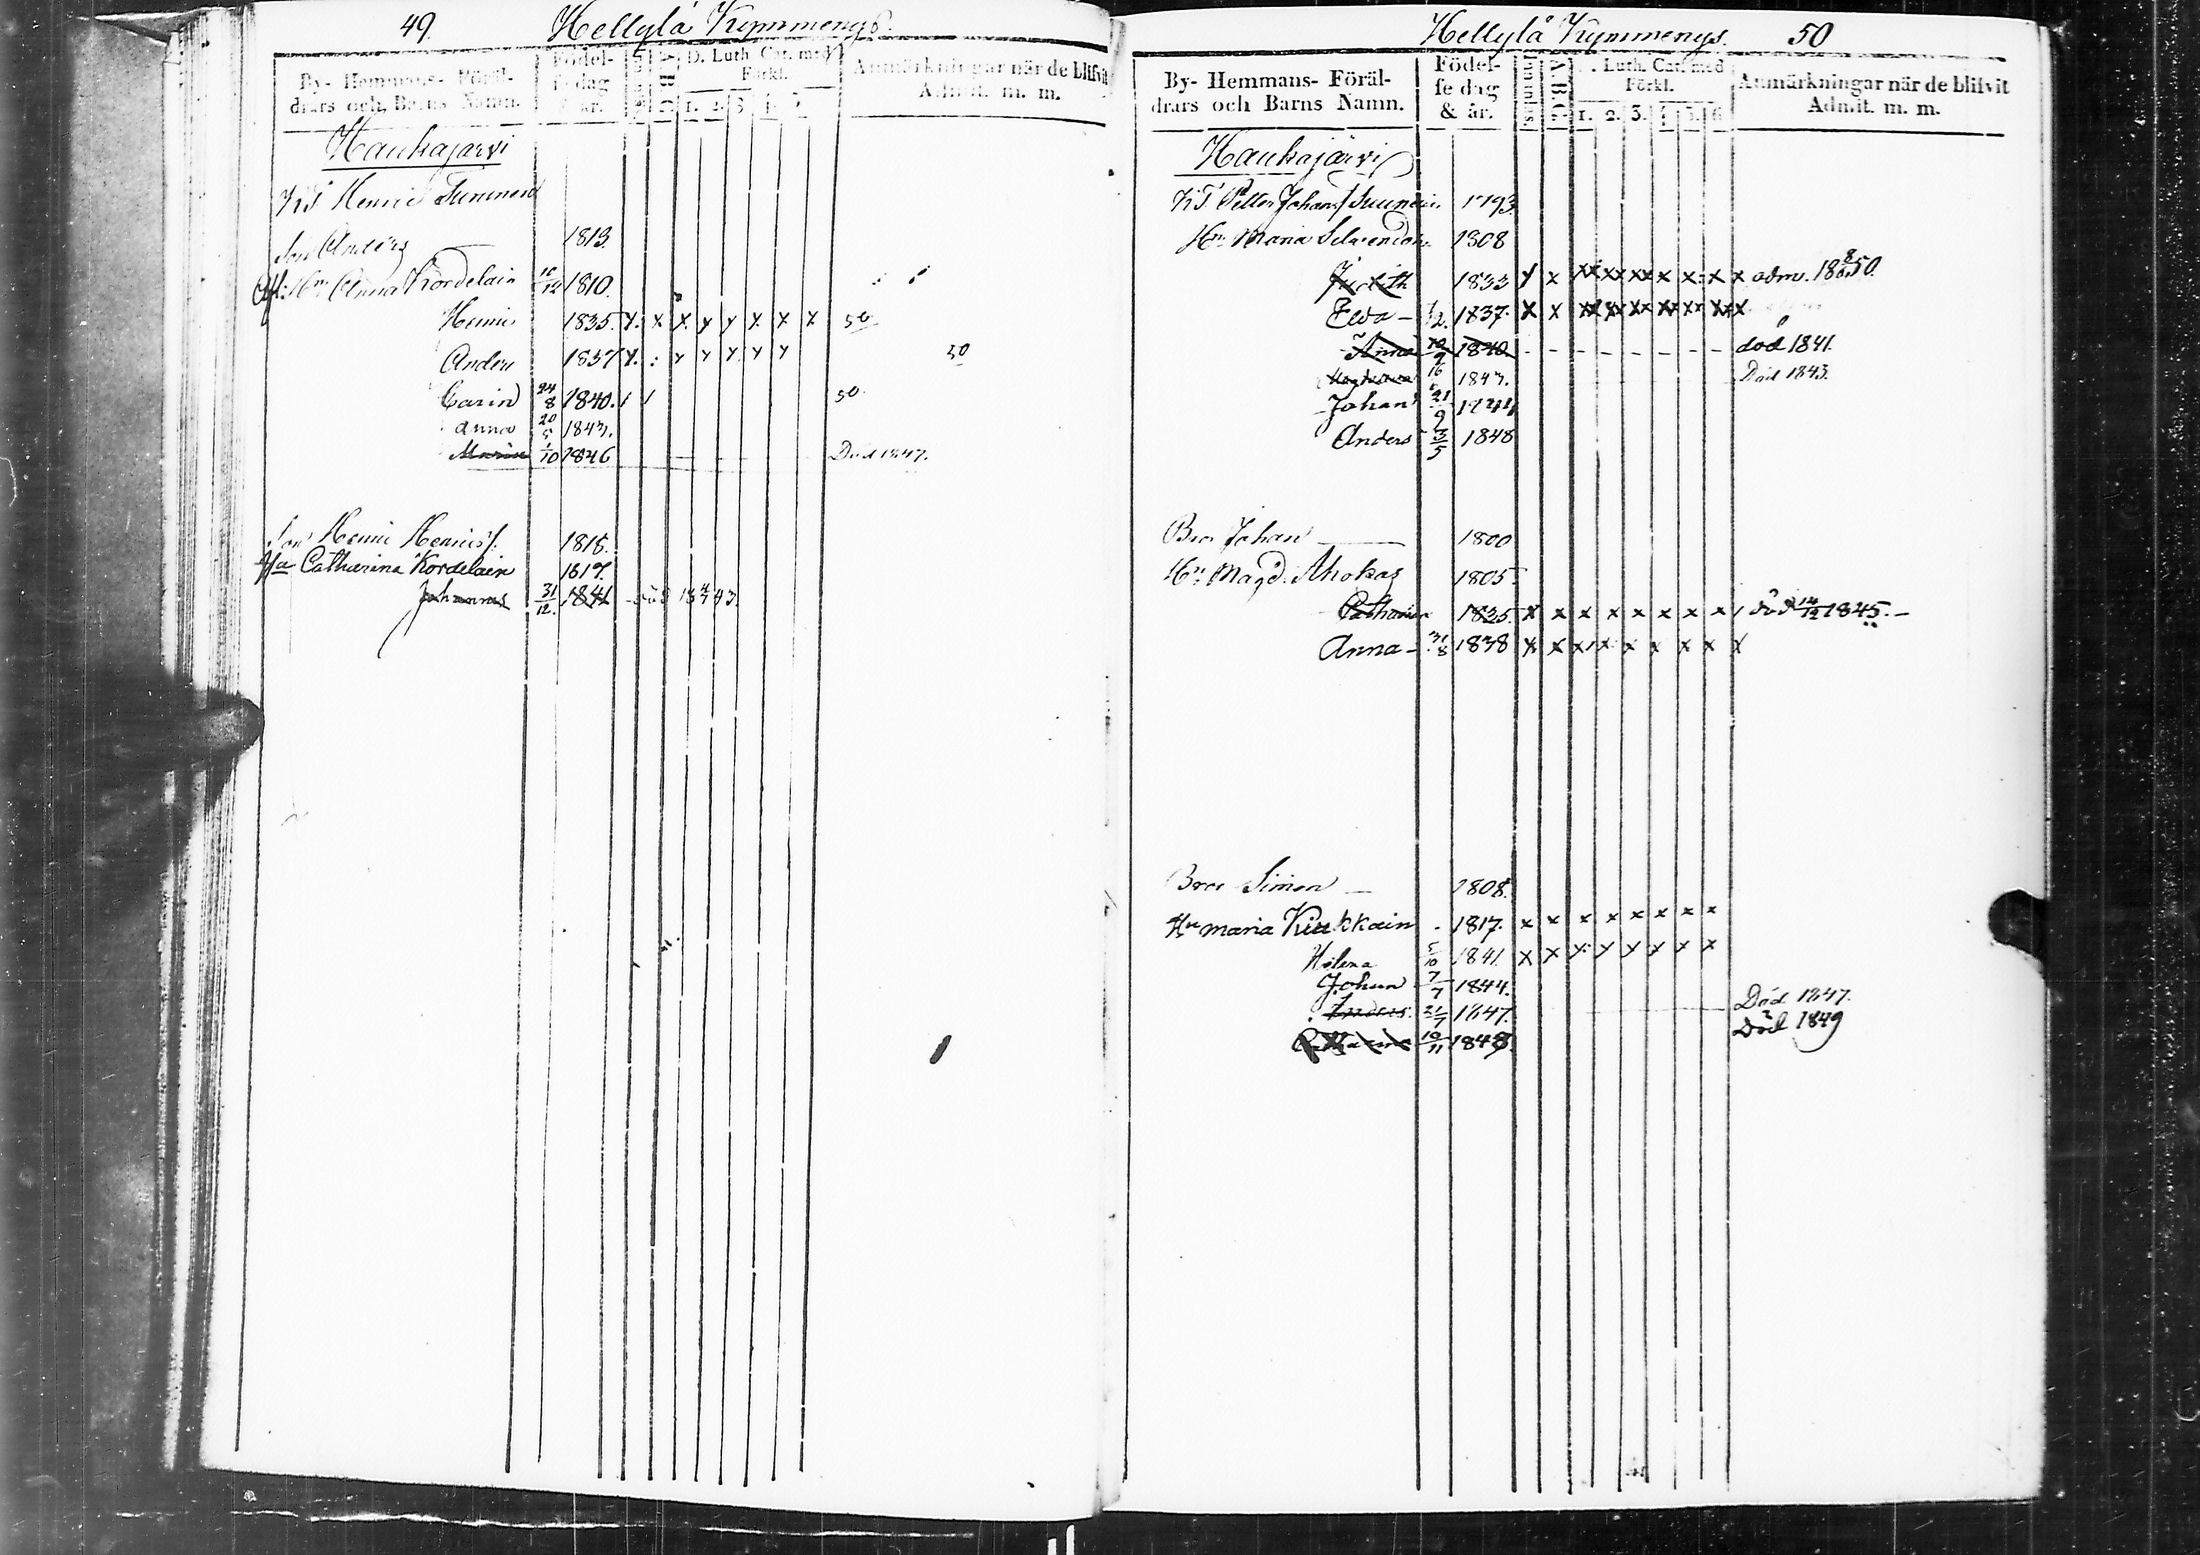 49 Hellylä Kymmenys.
By- Hemmans- Föräl-
drars och Barns Namn.
Födel-
sedag
& år.
D. Luth. Cat. med
Förkl.
1. 2. 3
Anmärkningar när de blifvit
Admit. m. m.
Haukajärvi
Henric
Son Anders 1813.
Hu Anna Kordelain 1810.
Henric 1835. x x x y y x x x 50
Anders 1837 x : y y y y y 50
Carin 24/8 1840. 50.
Anna 20/5 1843.
Maria 1/10 1846 Död 1847.
Son Henric Henrics.
Hu Catharina Kordelain 1817.
Johannes 31/12. 1841 död 43.
Hellylä Kymmenys. 50
By- Hemmans- Föräl-
drars och Barns Namn.
Födel-
sedag
& år.
A.B.C.
Luth. Cat. med
Förkl.
1. 2. 3. 4. 5. 6
Anmärkningar när de blifvit
Admit. m. m.
Haukajärvi
Petter Johans 1793.
Hu Maria 1808
Judith 1833 x x xx xx xx x x x x adm. 50.
Ewa 1837. x x
Anna 10/9 1840. död 1841.
16 1843. Död 1843.
Johan 21/9 1844
Anders 3/5 1848
Bror Johan 1800
Hu Magd. Ahokas 1805.
Catharina 1835. x x x x x x x x död 14/12 1845.
Anna 31/8 1838 x x x x x x x x x
Bror Simon 1808.
Hu Maria 1817. x x x x x x x x
Helena 5/10 1841. x x y y y y x x
Johan 7/7 1844.
Anders 21/7 1847. Död 1847.
Catharina 10/11 1848. Död 1849